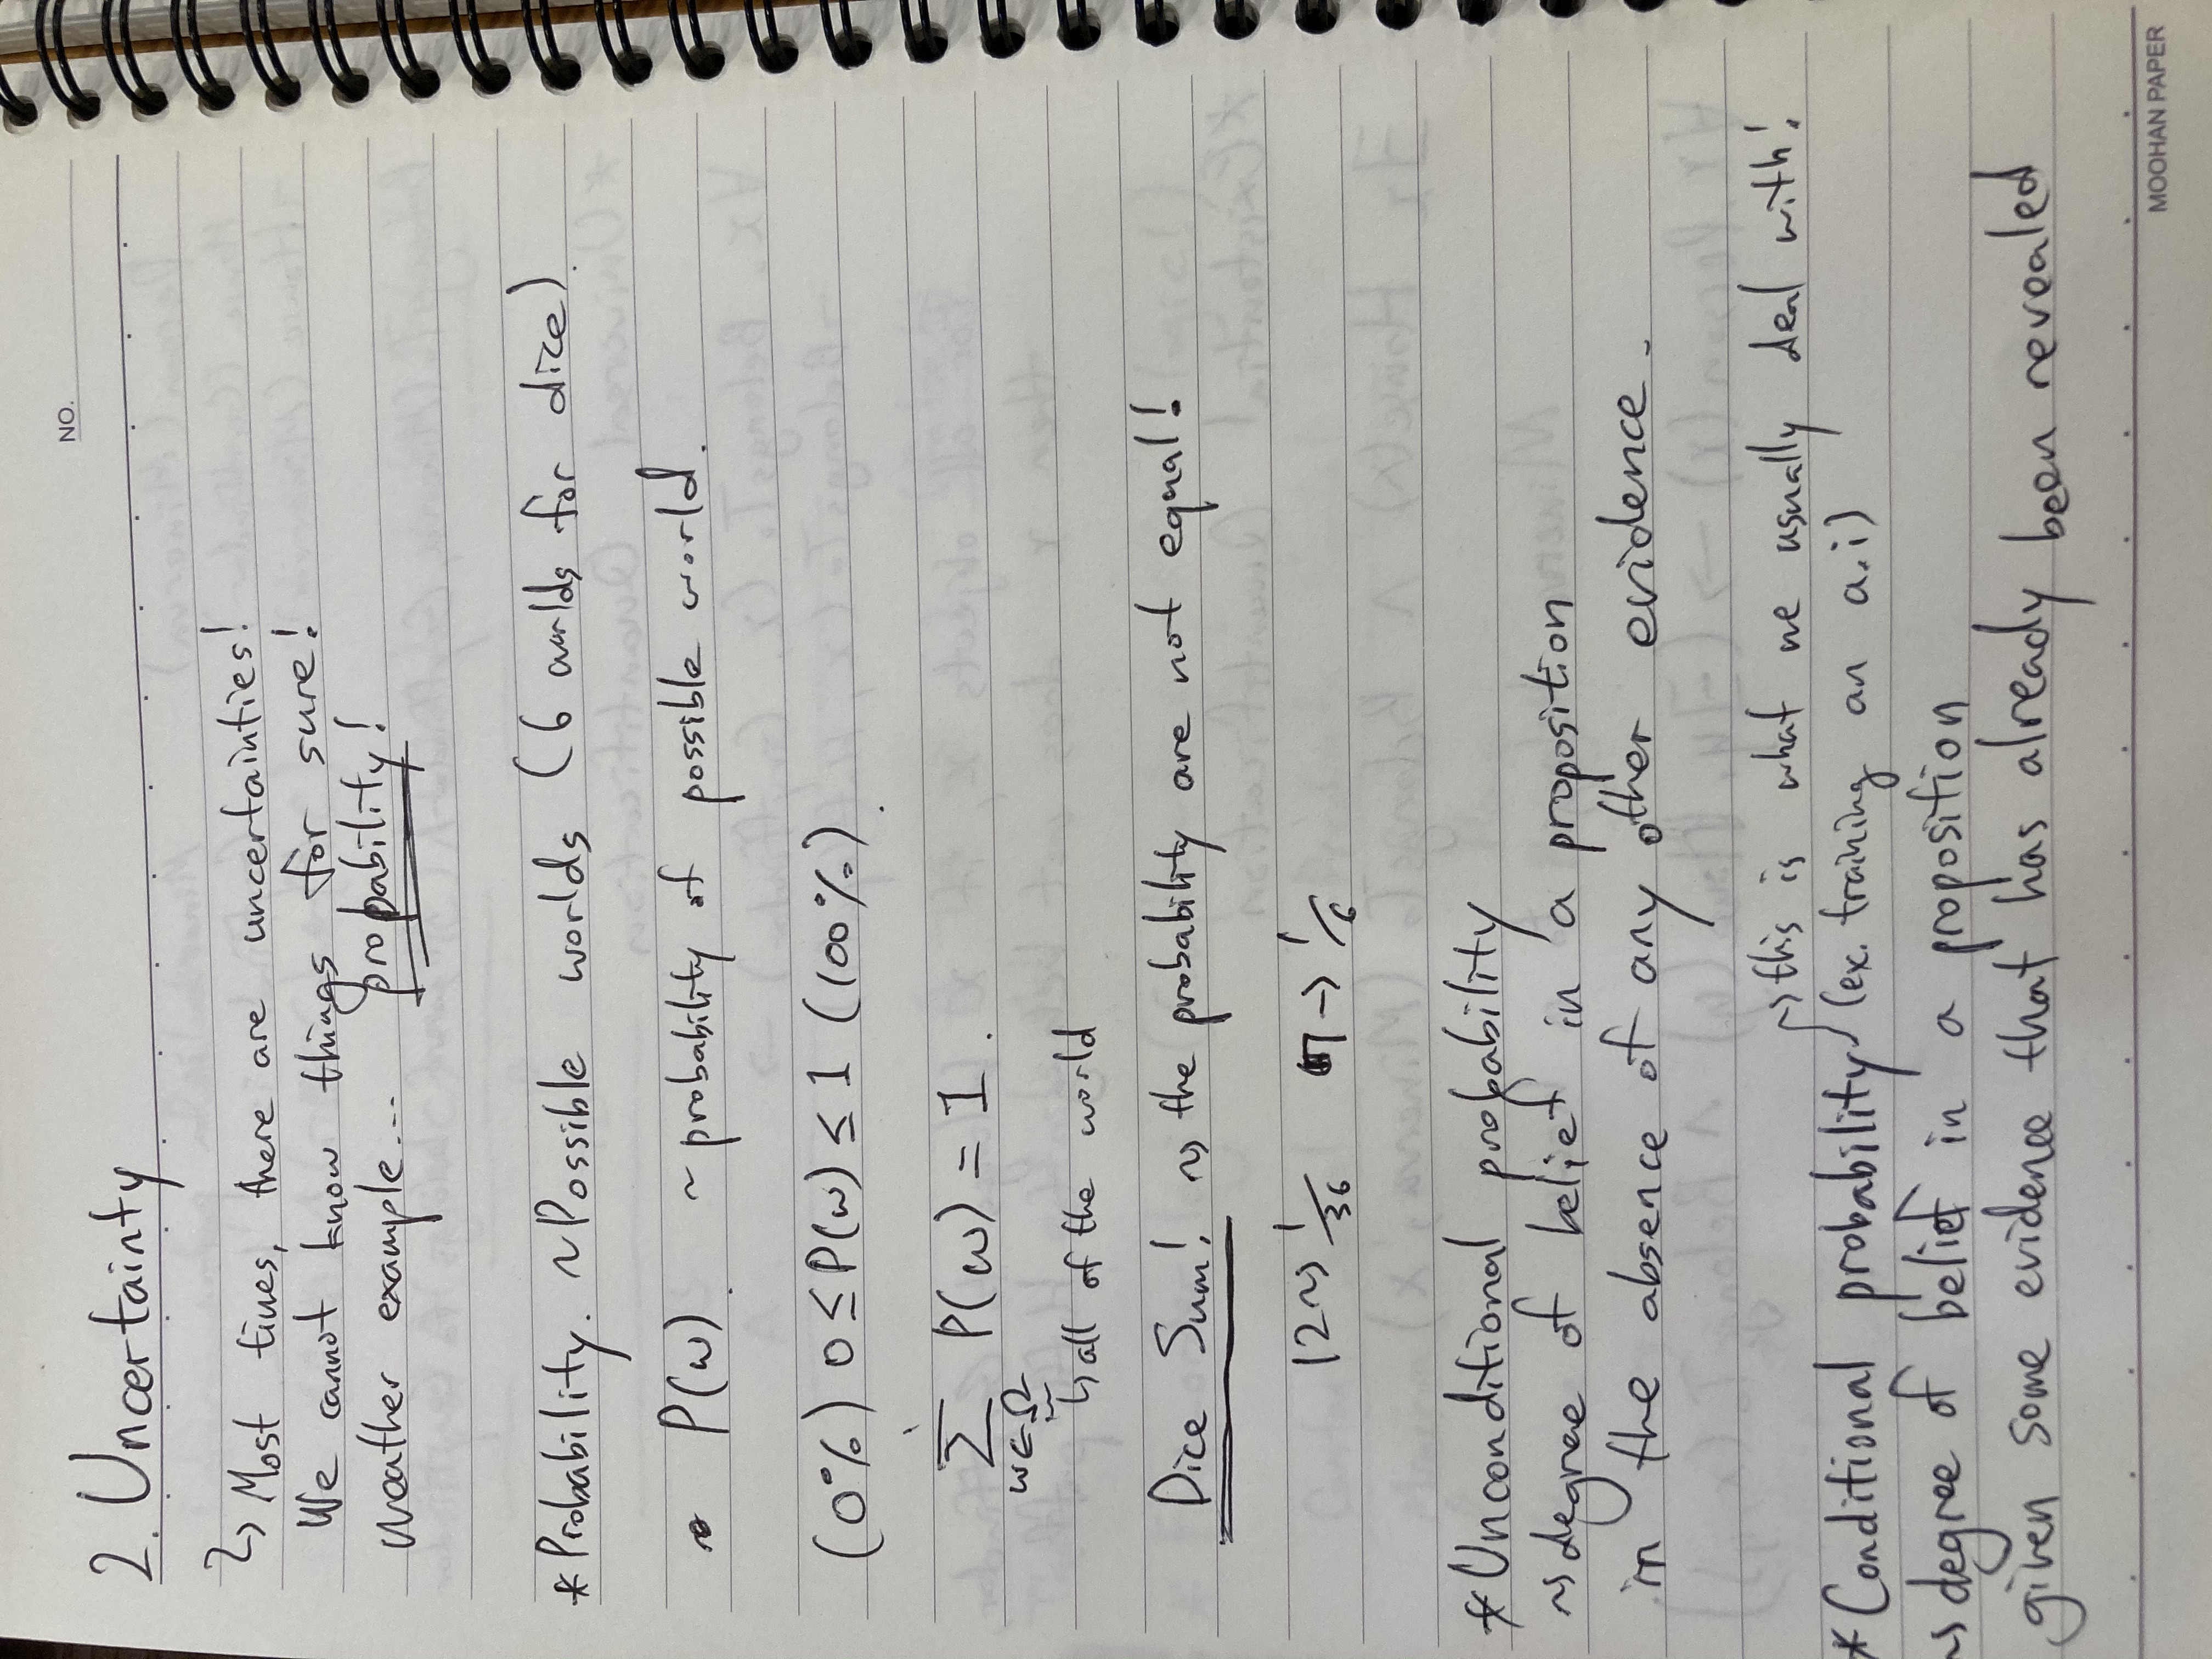 NO.
2. Uncertainty
↳ Most times, there are uncertainties!
We cannot know things for sure!
Weather example... probability!
*Probability. ~Possible worlds (6 worlds for dice).
P(ω). ~probability of possible world.
(0%) 0 ≤ P(ω) ≤ 1 (100%).
∑ P(ω) = 1.
ω∈Ω
↳ all of the world
Dice Sum! ⇝ the probability are not equal!
12 ⇝ 1/36 7 → 1/6
*Unconditional probability
⇝ degree of belief in a proposition
in the absence of any other evidence.
⇝ this is what we usually deal with!
*Conditional probability (ex. training an a.i)
⇝ degree of belief in a proposition
given some evidence that has already been revealed
MOOHAN PAPER